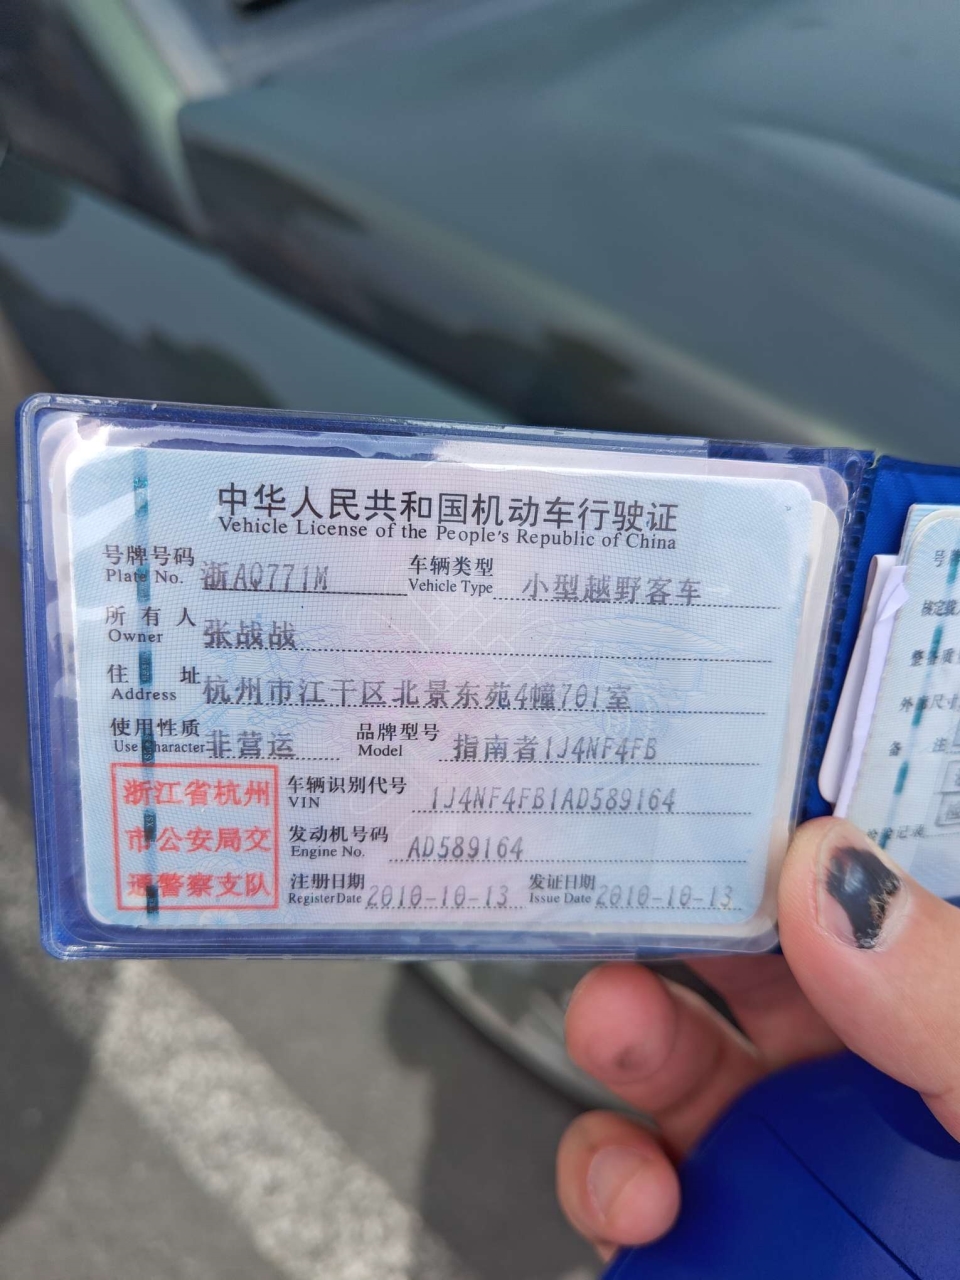 中华人民共和国机动车行驶证
Vehicle License of the People's Republic of China
号牌号码 浙AQ771M 车辆类型 小型越野客车
Plate No. Vehicle Type
所有人 张战战
Owner
住址 杭州市江干区北景东苑4幢701室
Address
使用性质 非营运 品牌型号 指南者1J4NF4FB
Use Character Model
浙江省杭州
市公安局交
通警察支队
车辆识别代号 1J4NF4FB1AD589164
VIN
发动机号码 AD589164
Engine No.
注册日期 2010-10-13 发证日期 2010-10-13
Register Date Issue Date
号
核定载
整备质
外廓尺寸
备 注
检验记录